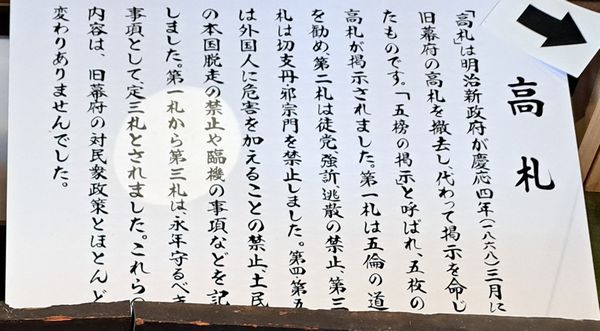 高札
「高札」は明治新政府が慶応四年(一八六八)三月に
旧幕府の高札を撤去し、代わって掲示を命じ
たものです。「五榜の掲示」と呼ばれ、五枚の
高札が掲示されました。第一札は五倫の道
を勧め、第二札は徒党、強訴、逃散の禁止、第三
札は切支丹・邪宗門を禁止しました。第四・第五
は外国人に危害を加えることの禁止、土民
の本国脱走の禁止や臨機の事項などを記
しました。第一札から第三札は、永年守るべき
事項として、定三札とされました。これらの
内容は、旧幕府の対民衆政策とほとんど
変わりありませんでした。